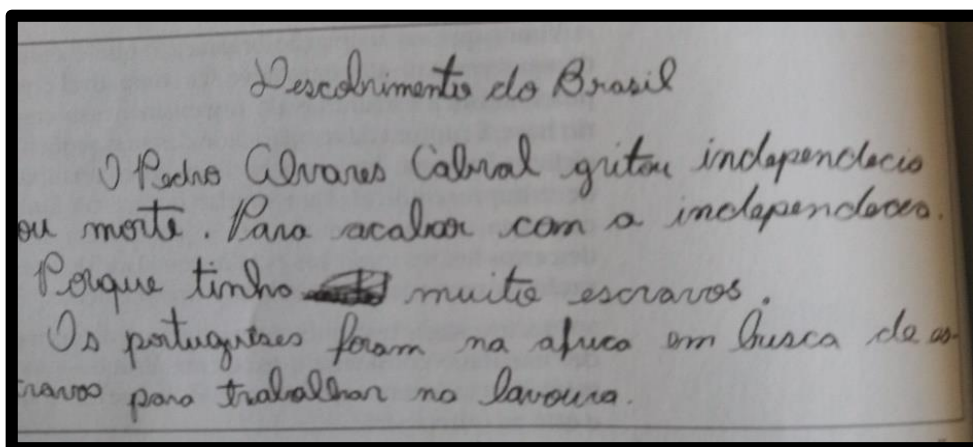 Descobrimento do Brasil
O Pedro Alvares Cabral gritou independecia
ou morte. Para acabar com a independeces.
Porque tinha muito escravos.
Os portugueses foram na africa em busca de es-
cravos para trabalhar na lavoura.